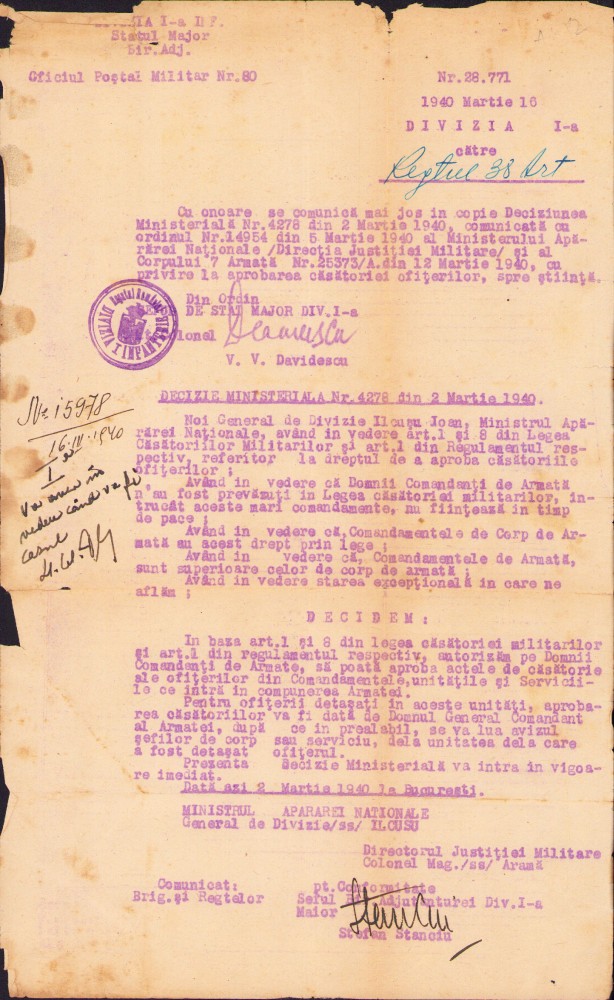 DIVIZIA I-a INF.
Statul Major
Dir.Adj.
Oficiul Poştal Militar Nr.80
Nr.28.771
1940 Martie 16
DIVIZIA I-a
către
Regtul 38 Art
Cu onoare se comunică mai jos in copie Deciziunea
Ministerială Nr.4278 din 2 Martie 1940, comunicată cu
ordinul Nr.14954 din 5 Martie 1940 al Ministerului Apă-
rărei Naţionale /Direcţia Justiţiei Militare/ şi al
Corpului 7 Armată Nr.25373/A.din 12 Martie 1940, cu
privire la aprobarea căsătoriei ofiţerilor, spre ştiinţă.
Din Ordin
DE STAT MAJOR DIV.I-a
lonel
V. V. Davidescu
DIVIZIA I INFANTERIE
DECIZIE MINISTERIALA Nr.4278 din 2 Martie 1940.
Noi General de Divizie Ilcuşu Ioan, Ministrul Apă-
rărei Naţionale, având in vedere art.1 şi 8 din Legea
Căsătoriilor Militarilor şi art.1 din Regulamentul res-
pectiv, referitor la dreptul de a aproba căsătoriile
ofiţerilor ;
Având in vedere că Domnii Comandanţi de Armată
n'au fost prevăzuţi in Legea căsătoriei militarilor, in-
trucât aceste mari comandamente, nu fiinţează in timp
de pace ;
Având in vedere că,Comandamentele de Corp de Ar-
mată au acest drept prin lege ;
Având in vedere că, Comandamentele de Armată,
sunt superioare celor de corp de armată ;
Având in vedere starea excepţională in care ne
aflăm ;
Nr 15978
16-III-1940
I
Va avea în
vedere când va fi
cazul
DECIDEM:
In baza art.1 şi 8 din legea căsătoriei militarilor
şi art.1 din regulamentul respectiv, autorizăm pe Domnii
Comandanţi de Armate, să poată aproba actele de căsătorie
ale ofiţerilor din Comandamentele,unităţile şi Servicii-
le ce intră in compunerea Armatei.
Pentru ofiţerii detaşaţi in aceste unităţi, aproba-
rea căsătoriilor va fi dată de Domnul General Comandant
al Armatei, după ce in prealabil, se va lua avizul
şefilor de corp sau serviciu, dela unitatea dela care
a fost detaşat ofiţerul.
Prezenta Decizie Ministerială va intra in vigoa-
re imediat.
Dată azi 2 Martie 1940 la Bucureşti.
MINISTRUL APARAREI NATIONALE
General de Divizie/ss/ ILCUSU
Directorul Justiţiei Militare
Colonel Mag./ss/ Aramă
Comunicat:
Brig.şi Regtelor
pt.Conformitate
Seful Adjutanturei Div.I-a
Maior
Stefan Stanciu